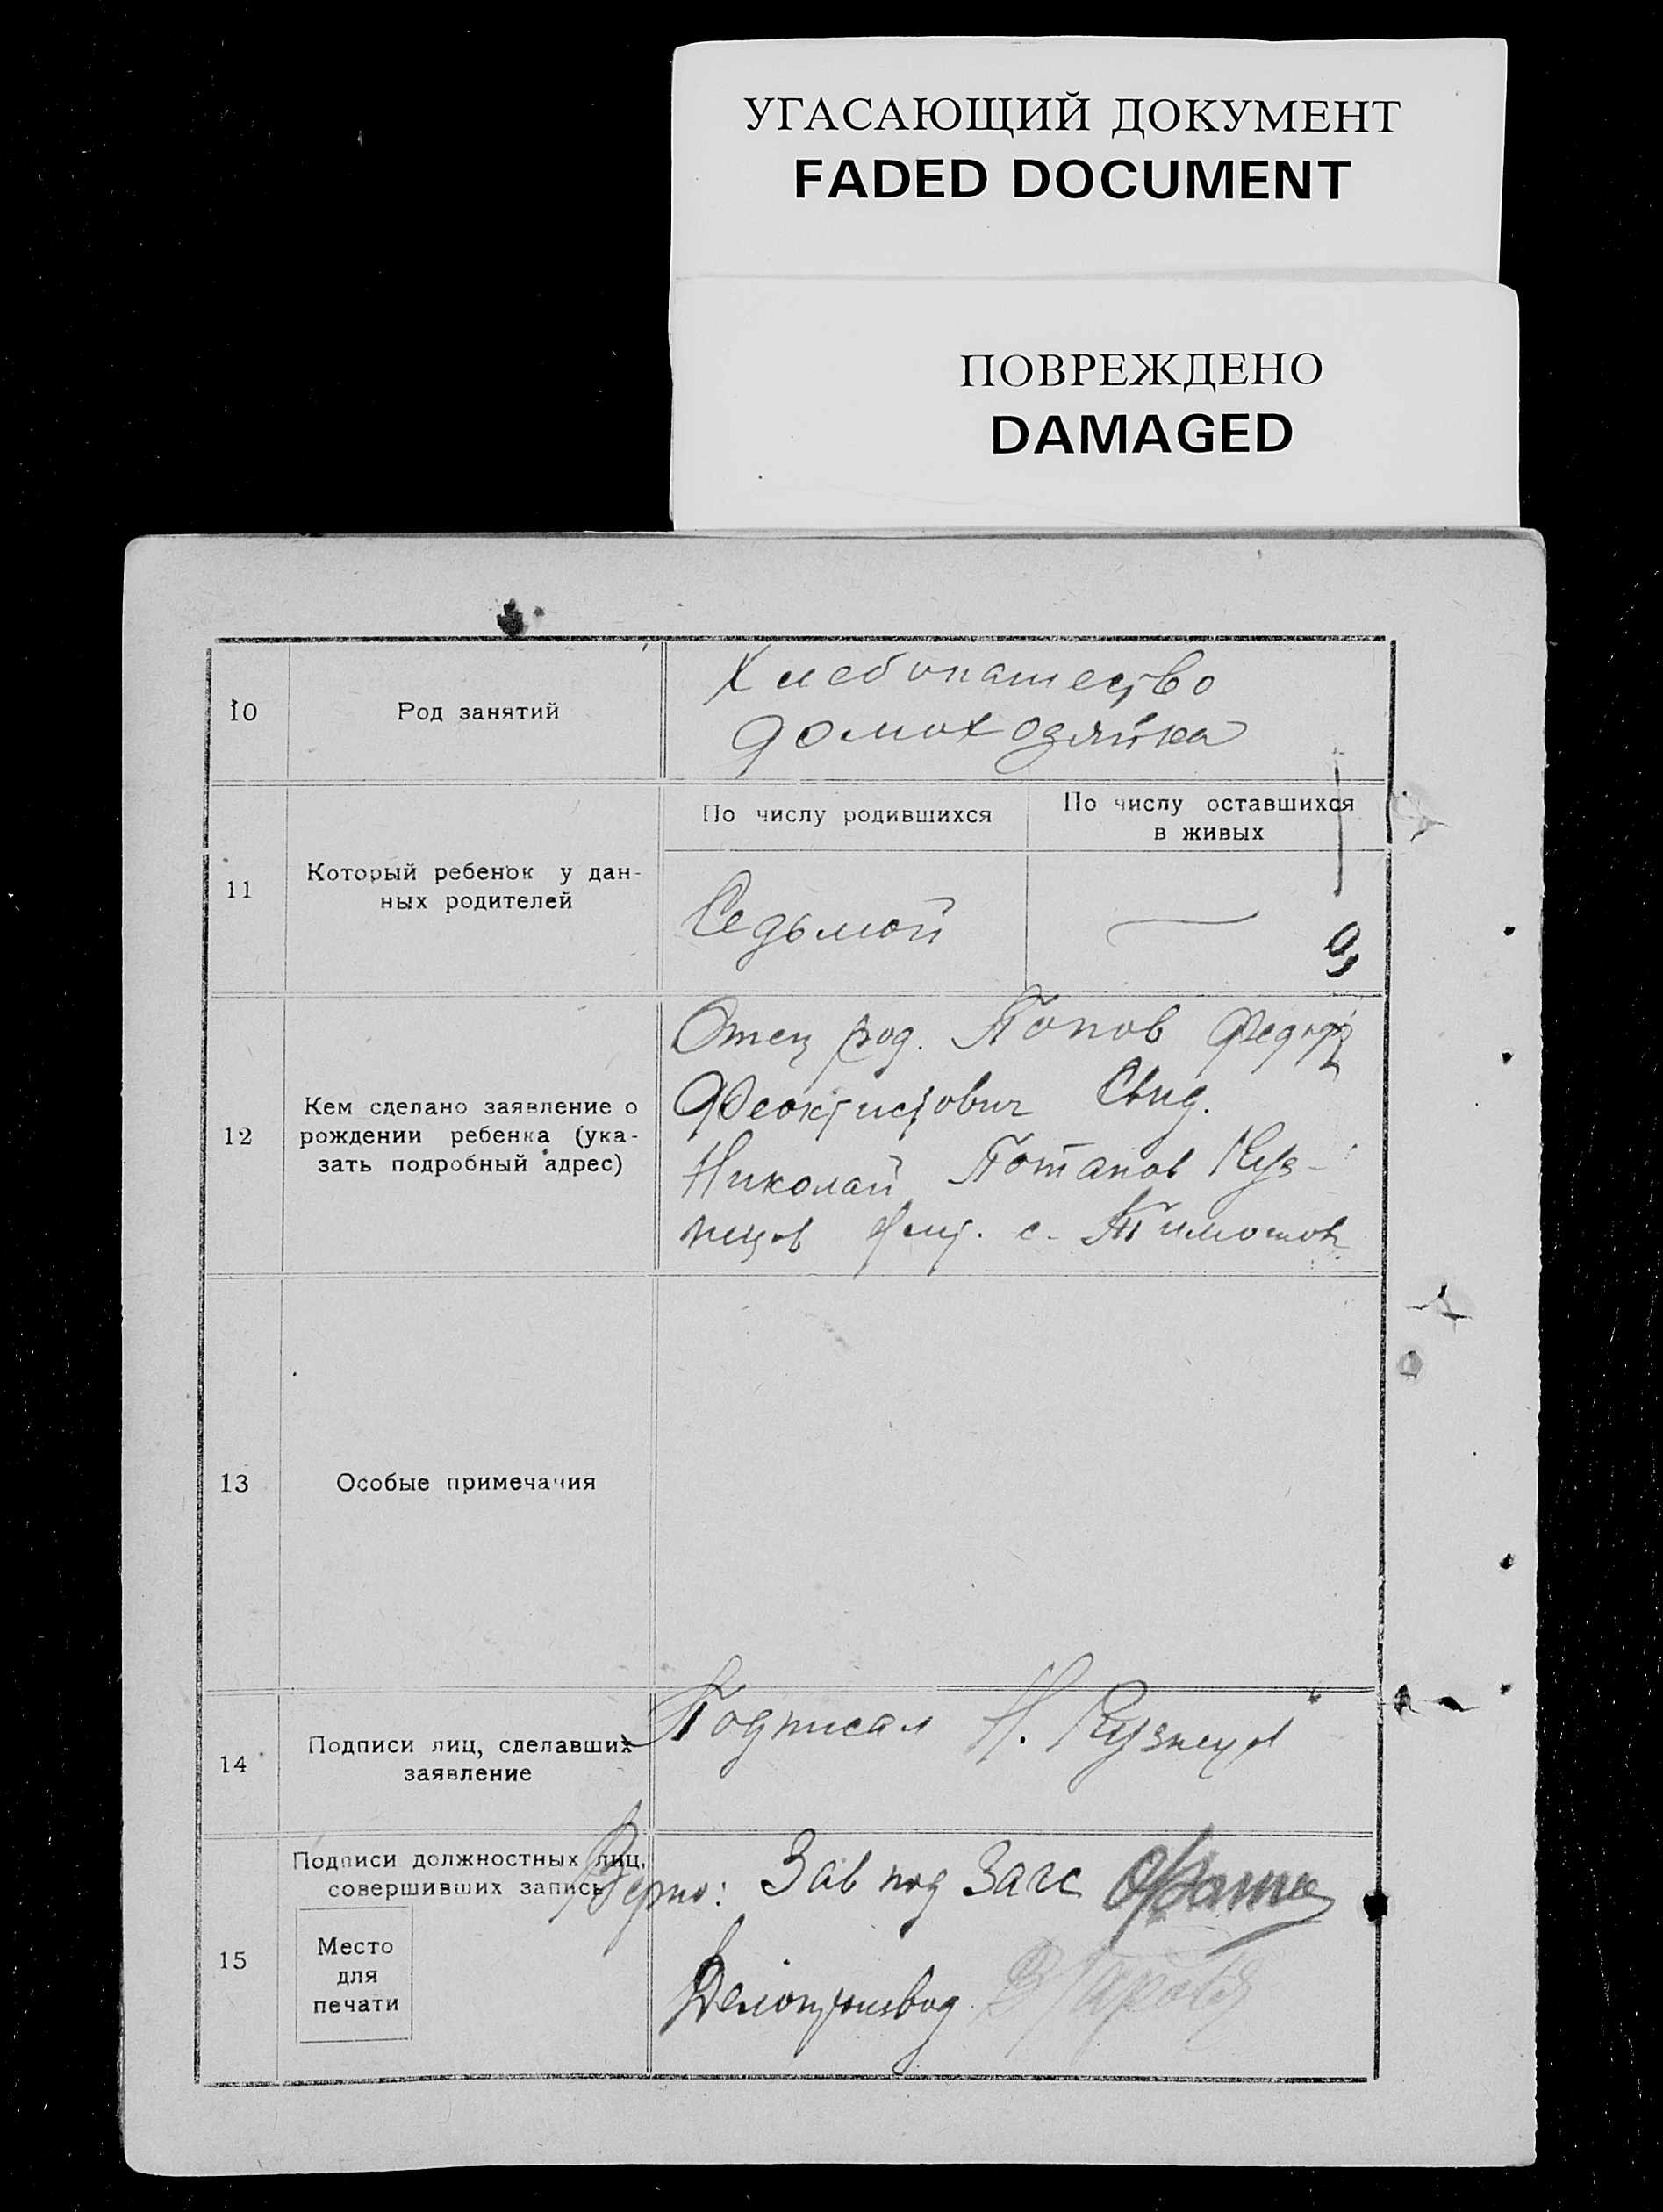 УГАСАЮЩИЙ ДОКУМЕНТ
FADED DOCUMENT
ПОВРЕЖДЕНО
DAMAGED
10
Род занятий
Хлебопашество
домохозяйка
11
Который ребенок у дан-
ных родителей
По числу родившихся
По числу оставшихся
в живых
Седьмой
—
9
12
Кем сделано заявление о
рождении ребенка (ука-
зать подробный адрес)
Отец род. Попов Федор
Феоктистович Свид.
Николай Потапов Куз-
нецов с.
13
Особые примечания
14
Подписи лиц, сделавших
заявление
Подписал Н. Кузнецов
15
Подписи должностных лиц,
совершивших запись
Место
для
печати
Верно: Зав под Загс
Делопроизвод.